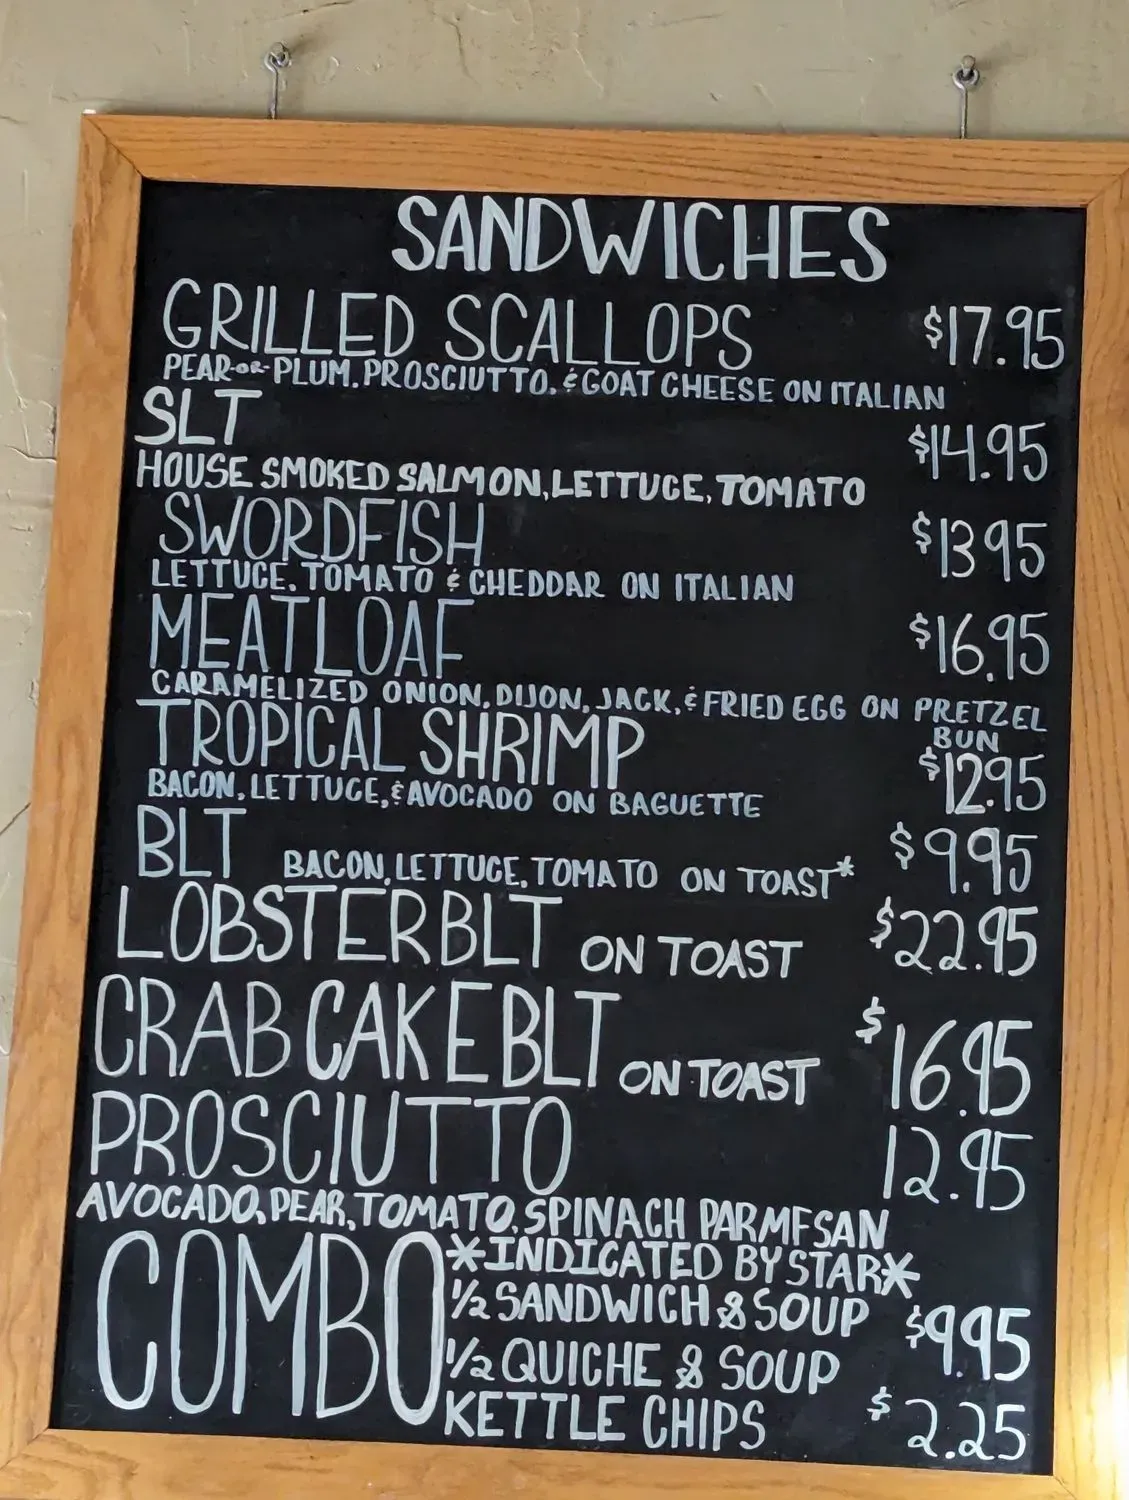 SANDWICHES
GRILLED SCALLOPS $17.95
PEAR-OR-PLUM, PROSCIUTTO, & GOAT CHEESE ON ITALIAN
SLT $14.95
HOUSE SMOKED SALMON, LETTUCE, TOMATO
SWORDFISH $13.95
LETTUCE, TOMATO & CHEDDAR ON ITALIAN
MEATLOAF $16.95
CARAMELIZED ONION, DIJON, JACK, & FRIED EGG ON PRETZEL
BUN
TROPICAL SHRIMP $12.95
BACON, LETTUCE, & AVOCADO ON BAGUETTE
BLT BACON, LETTUCE, TOMATO ON TOAST* $9.95
LOBSTER BLT ON TOAST $22.95
CRAB CAKE BLT ON TOAST $16.95
PROSCIUTTO 12.95
AVOCADO, PEAR, TOMATO, SPINACH PARMESAN
COMBO *INDICATED BY STAR*
½ SANDWICH & SOUP $9.95
½ QUICHE & SOUP
KETTLE CHIPS $2.25